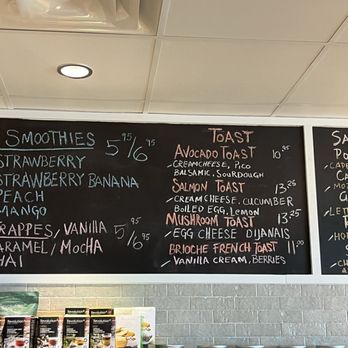 SMOOTHIES 5.95/6.95
STRAWBERRY
STRAWBERRY BANANA
PEACH
MANGO
FRAPPES/VANILLA 5.95/6.95
CARAMEL/MOCHA
CHAI
TOAST
AVOCADO TOAST 10.95
CREAMCHEESE, PICO
BALSAMIC, SOURDOUGH
SALMON TOAST 13.25
CREAM CHEESE, CUCUMBER
BOILED EGG, LEMON
MUSHROOM TOAST 13.25
EGG CHEESE DIJANAIS
BRIOCHE FRENCH TOAST 11.00
VANILLA CREAM, BERRIES